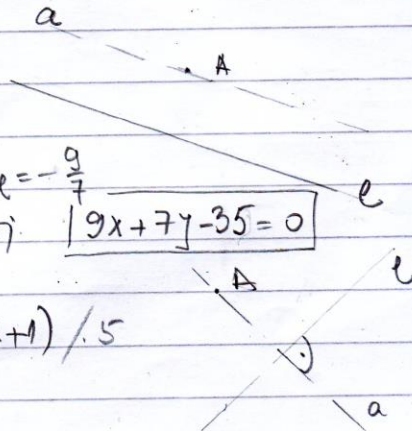 a
A
e = -9/7
e
9x+7y-35=0
A
+1) /.5
a